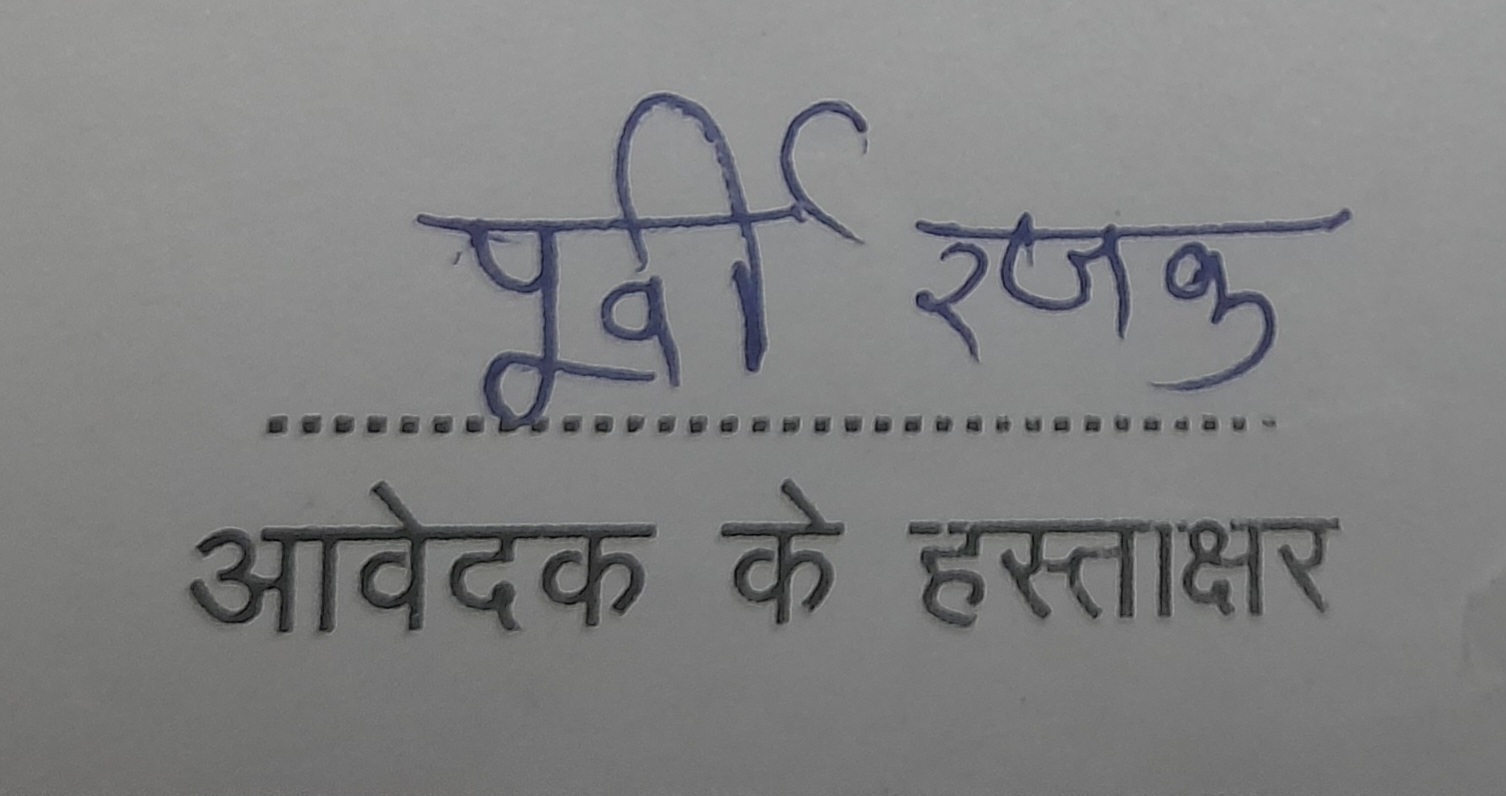 पूर्वी रजक
आवेदक के हस्ताक्षर